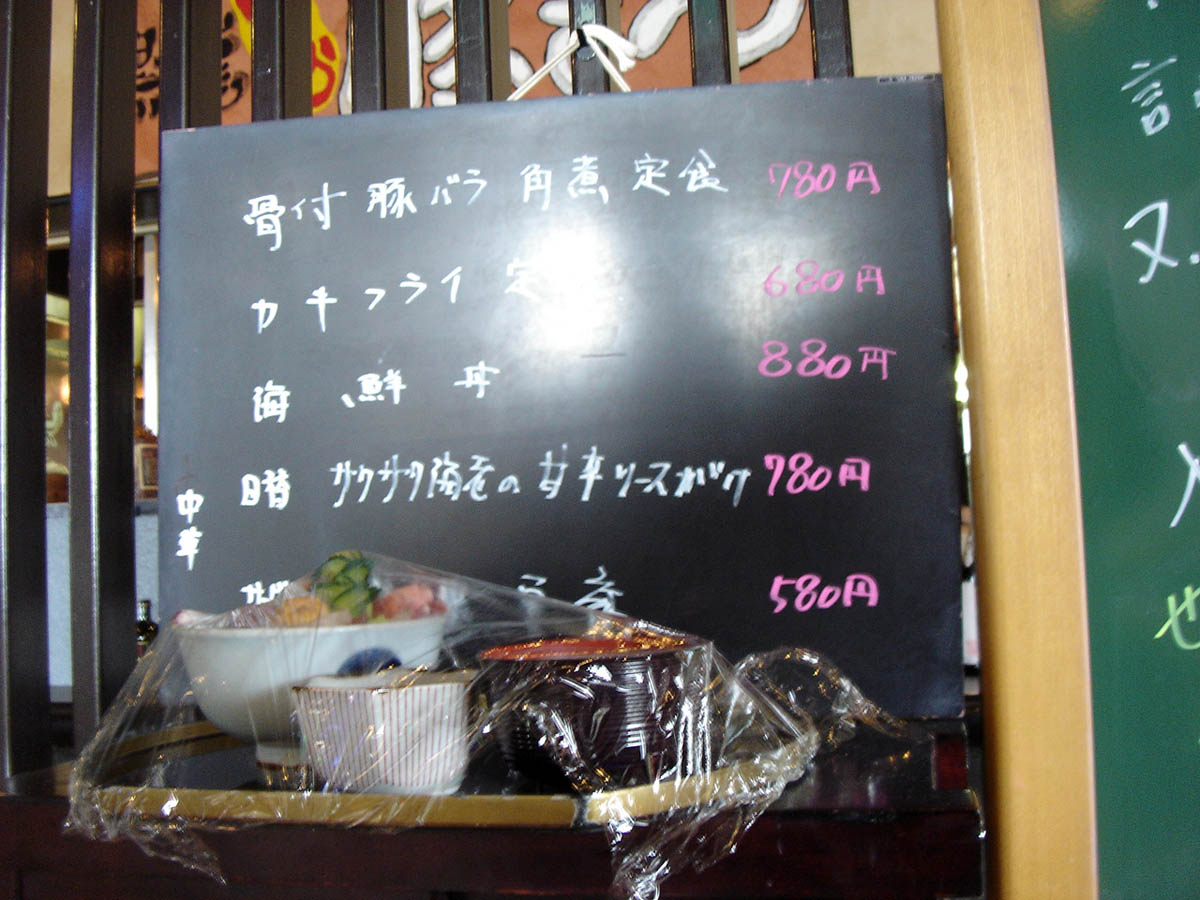 骨付 豚バラ 角煮 定食 780円
カキフライ 定 680円
海鮮丼 880円
中華
日替 サクサク海老の甘辛ソースがけ 780円
580円
言
又
也